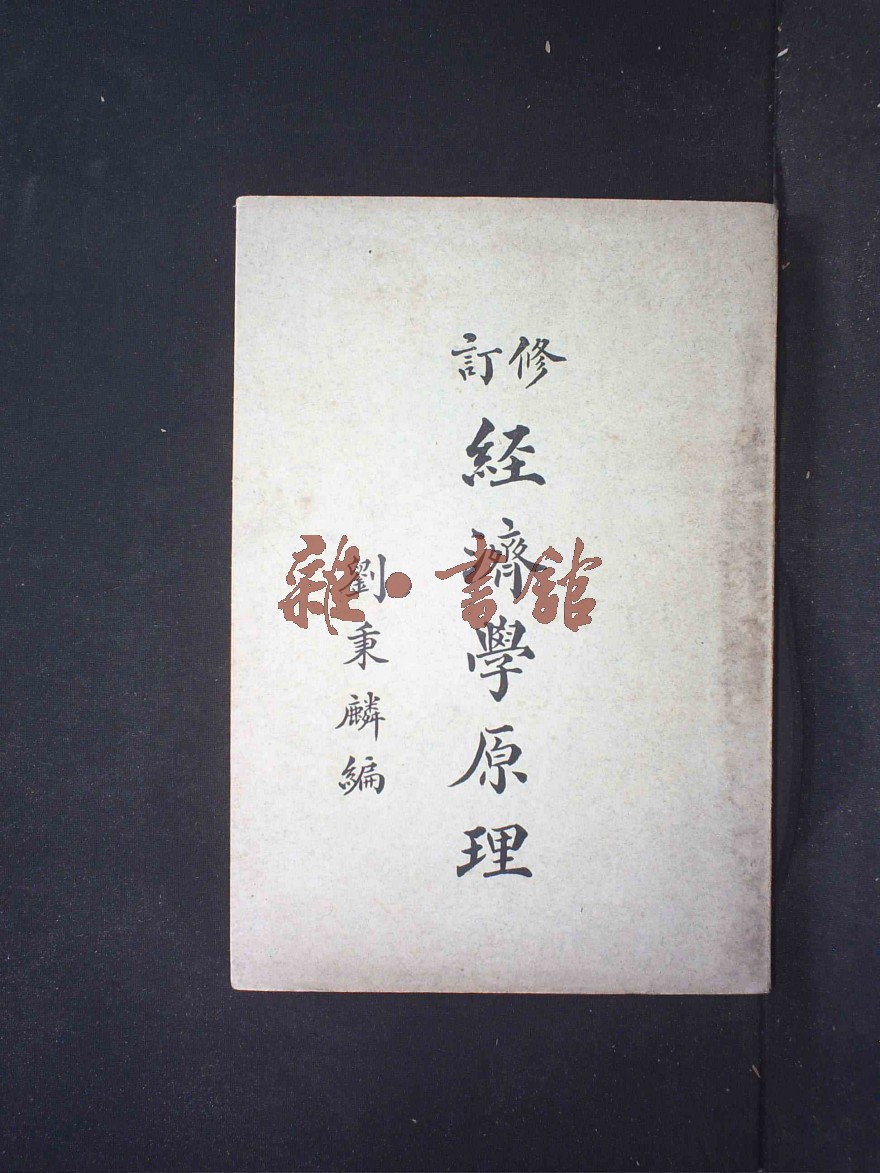 修訂
経濟學原理
劉秉麟編
雜·書館